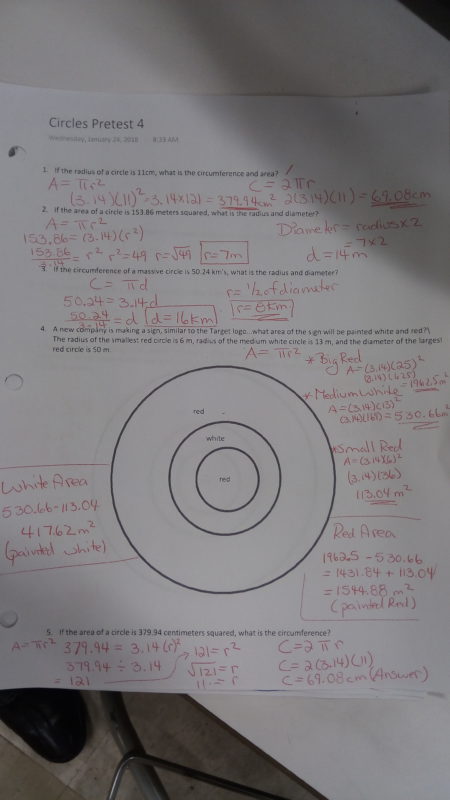 Circles Pretest 4
Wednesday, January 24, 2018 8:33 AM
1. If the radius of a circle is 11cm, what is the circumference and area?
A= πr² C= 2πr
(3.14)(11)²=3.14x121 = 379.94cm² 2(3.14)(11) = 69.08cm
2. If the area of a circle is 153.86 meters squared, what is the radius and diameter?
A= πr² Diameter = radius x 2
153.86= (3.14)(r²) = 7x2
153.86/3.14 = r² r²=49 r=√49 r=7m d=14m
3. If the circumference of a massive circle is 50.24 km's, what is the radius and diameter?
C = πd r= ½ of diameter
50.24= 3.14d r=8km
50.24/3.14 = d d=16km
4. A new company is making a sign, similar to the Target logo...what area of the sign will be painted white and red?
The radius of the smallest red circle is 6 m, radius of the medium white circle is 13 m, and the diameter of the largest
red circle is 50 m.
A= πr²
* Big Red
A=(3.14)(25)²
(3.14)(625)
= 1962.5m²
* Medium White
A=(3.14)(13)²
(3.14)(169)=530.66m²
* Small Red
A=(3.14)(6)²
(3.14)(36)
113.04 m²
red
white
red
White Area
530.66-113.04
417.62m²
(painted white)
Red Area
1962.5 - 530.66
= 1431.84 + 113.04
= 1544.88 m²
(painted Red)
5. If the area of a circle is 379.94 centimeters squared, what is the circumference?
A=πr² 379.94 = 3.14(r)² 121= r² C=2πr
379.94 ÷ 3.14 √121= r C= 2(3.14)(11)
= 121 11 = r C=69.08cm (Answer)